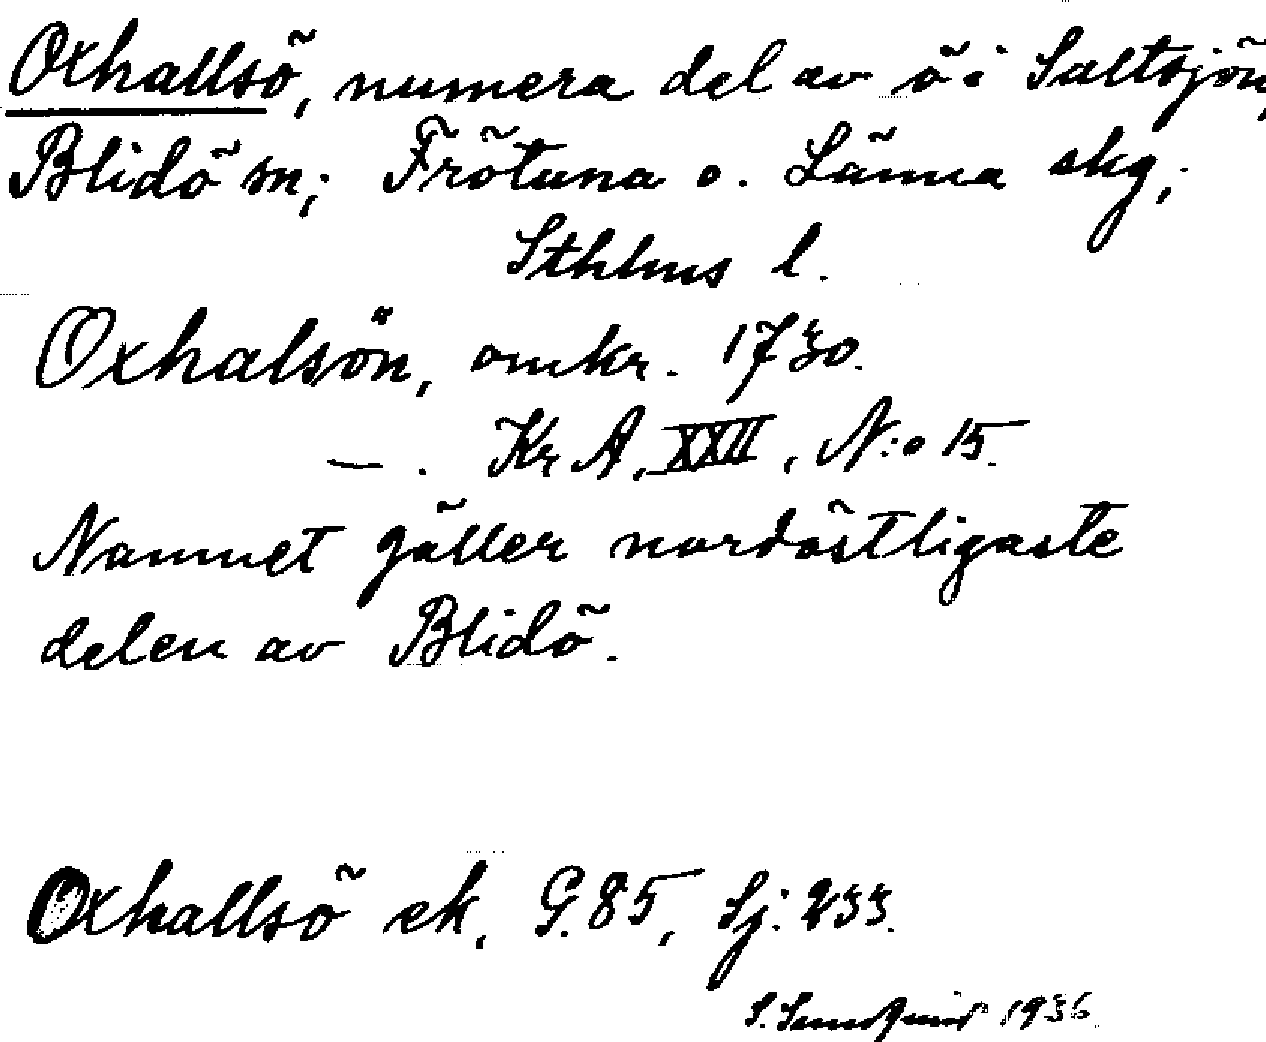 Oxhallsö, numera del av ö i Saltsjön,
Blidö sn; Frötuna o. Länna skg,
Sthlms l.
Oxhalsön, omkr. 1730.
— . Kr A, XXII, N:o 15.
Namnet gäller nordöstligaste
delen av Blidö.
Oxhallsö ek, G. 85, Sj: 233.
S. 1936